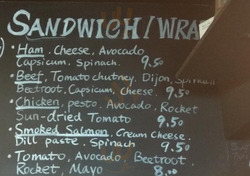 SANDWICH/WRA
• Ham. Cheese, Avocado
Capsicum. Spinach. 9.50
• Beef. Tomato chutney. Dijon, Spinach
Beetroot, Capsicum, Cheese. 9.50
• Chicken, pesto. Avocado. Rocket
Sun-dried Tomato 9.50
• Smoked Salmon. Cream Cheese.
Dill paste. Spinach 9.50
• Tomato, Avocado, Beetroot.
Rocket, Mayo 8.00